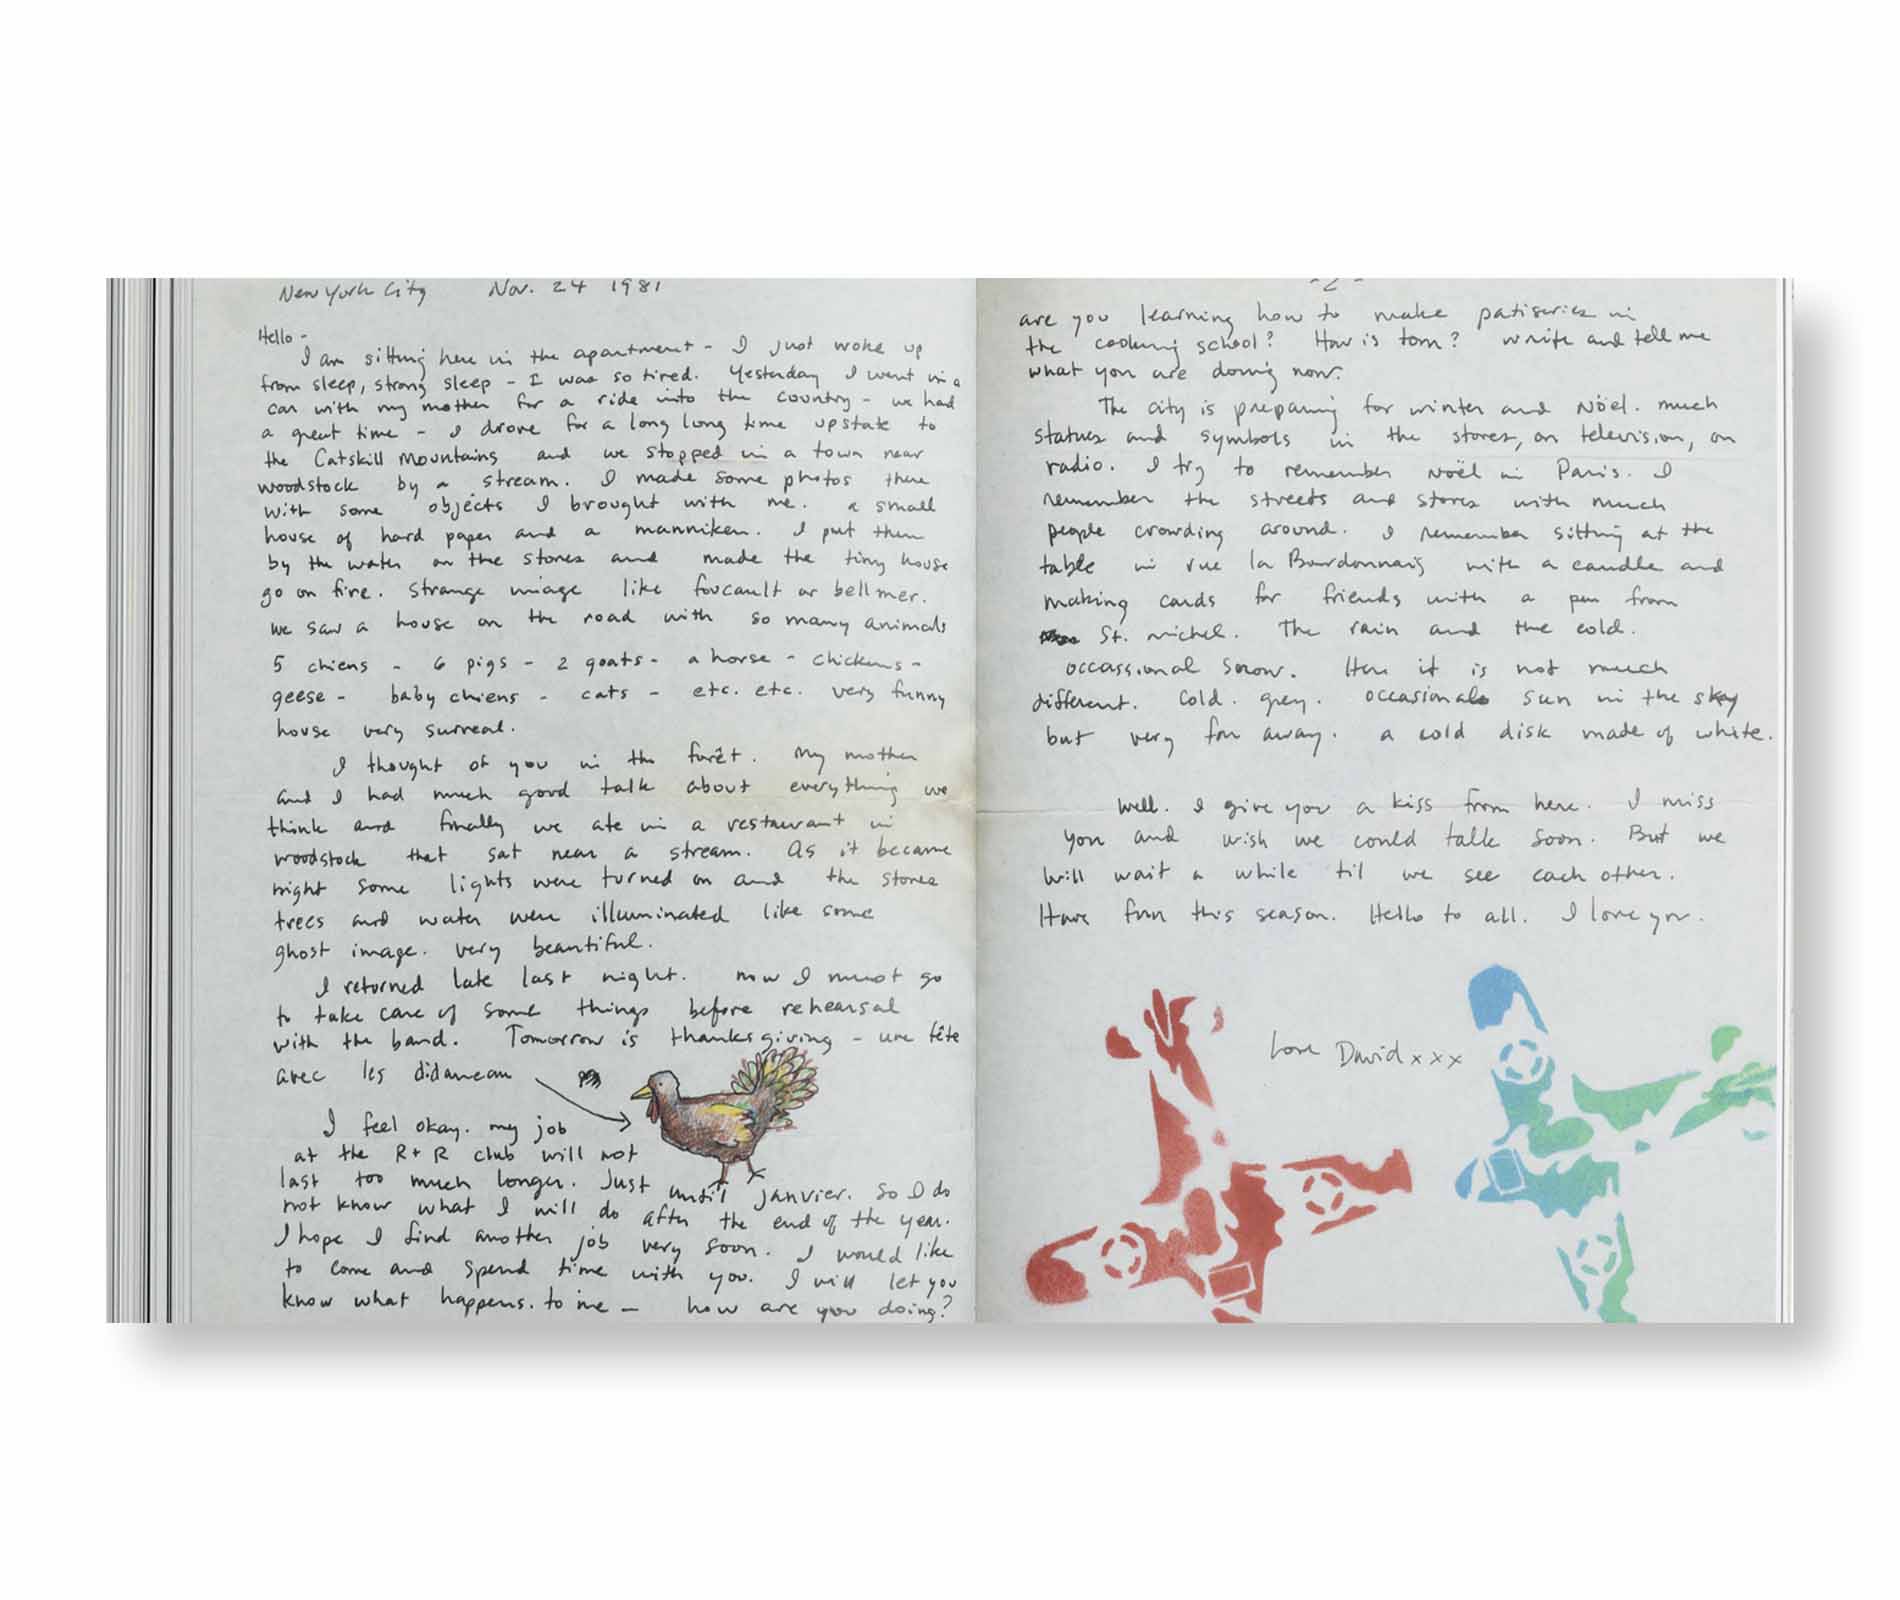 New York City Nov. 24 1981
Hello -
I am sitting here in the apartment - I just woke up
from sleep, strong sleep - I was so tired. Yesterday I went in a
car with my mother for a ride into the country - we had
a great time - I drove for a long long time upstate to
the Catskill Mountains and we stopped in a town near
woodstock by a stream. I made some photos there
with some objects I brought with me. a small
house of hard paper and a manniken. I put them
by the water on the stones and made the tiny house
go on fire. strange image like foucault or bellmer.
we saw a house on the road with so many animals
5 chiens - 6 pigs - 2 goats - a horse - chickens -
geese - baby chiens - cats - etc. etc. very funny
house very surreal.
I thought of you in the forêt. My mother
and I had much good talk about everything we
think and finally we ate in a restaurant in
woodstock that sat near a stream. As it became
night some lights were turned on and the stones
trees and water were illuminated like some
ghost image. very beautiful.
I returned late last night. now I must go
to take care of some things before rehearsal
with the band. Tomorrow is thanksgiving - une fête
avec les
I feel okay. my job
at the R+R club will not
last too much longer. Just until janvier. So I do
not know what I will do after the end of the year.
I hope I find another job very soon. I would like
to come and spend time with you. I will let you
know what happens. to me - how are you doing?
-2-
are you learning how to make patiseries in
the cooking school? How is tom? write and tell me
what you are doing now.
The city is preparing for winter and Nöel. much
statues and symbols in the stores, on television, on
radio. I try to remember Noël in Paris. I
remember the streets and stores with much
people crowding around. I remember sitting at the
table in rue la Bourdonnais with a candle and
making cards for friends with a pen from
St. michel. The rain and the cold.
occassional snow. Here it is not much
different. Cold. grey. occasional sun in the sky
but very far away. a cold disk made of white.
Well. I give you a kiss from here. I miss
you and wish we could talk soon. But we
will wait a while til we see each other.
Have fun this season. Hello to all. I love you.
Love David xxx